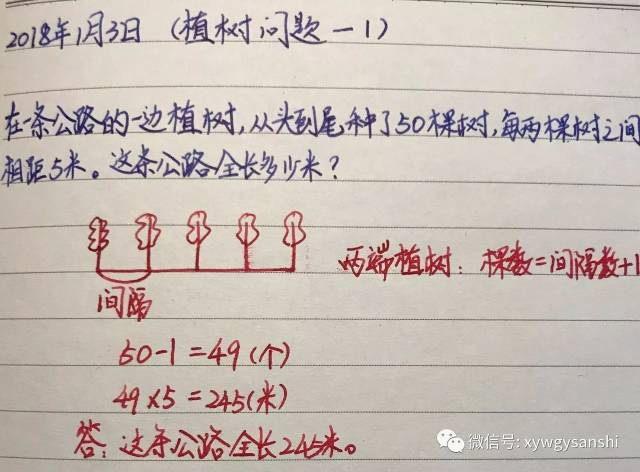 2018年1月3日 (植树问题一1)
在一条公路的一边植树,从头到尾种了50棵树,每两棵树之间
相距5米。这条公路全长多少米?
两端植树: 棵数=间隔数+1
间隔
50-1=49(个)
49×5=245(米)
答:这条公路全长245米。
微信号: xywgysanshi